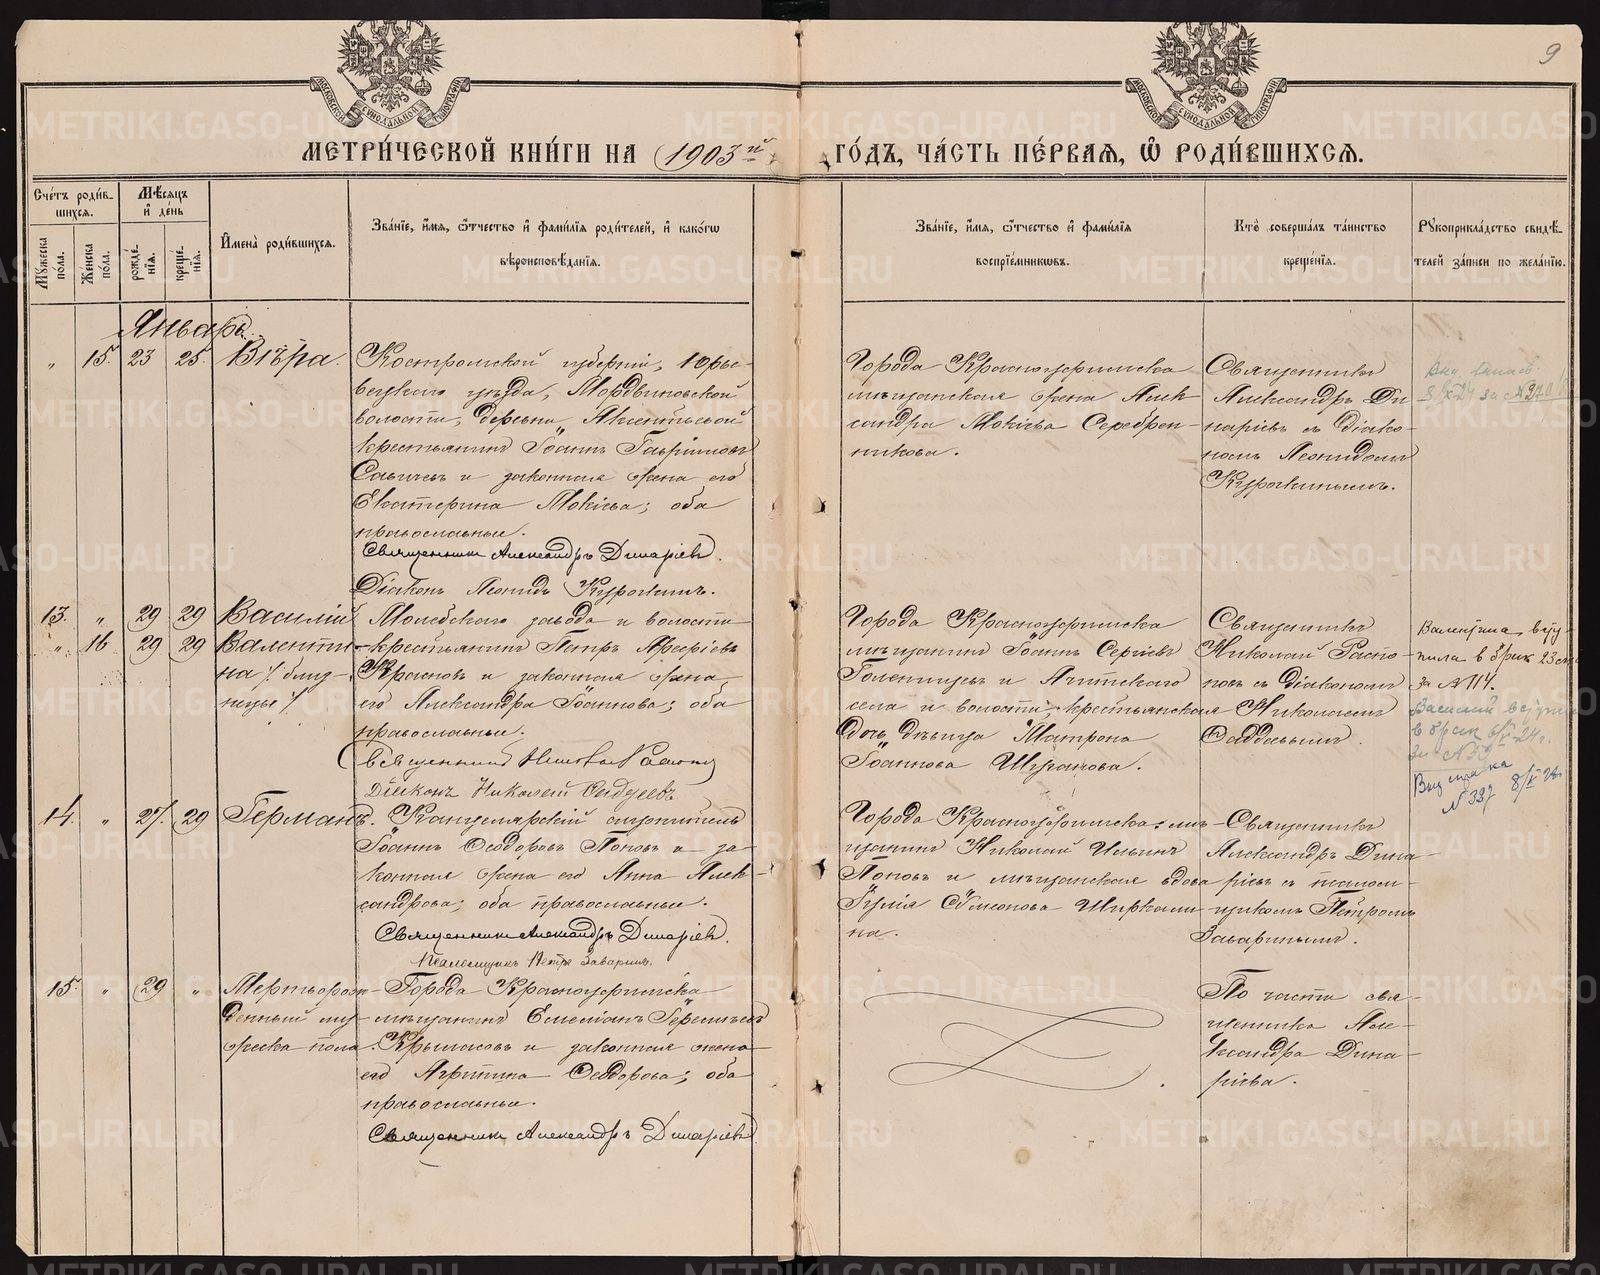 9
МОСКОВСКОЙ СѴНОДАЛЬНОЙ ТИПОГРАФІИ
МОСКОВСКОЙ СѴНОДАЛЬНОЙ ТИПОГРАФІИ
МЕТРИ́ЧЕСКОЙ КНИ́ГИ НА 1903й ГО́ДЪ, ЧА́СТЬ ПЕ́РВАЯ, Ѡ РОДИ́ВШИХСЯ.
Сче́тъ роди́в-
шихся.
Мѣсяцъ
и де́нь
Му́жеска
по́ла.
Же́нска
по́ла.
рожде́-
нія.
креще́-
нія.
Имена̀ роди́вшихся.
Зва́ніе, и́мя, ѻ́тчество и фами́лія роди́телей, и како́гѡ
вѣроисповѣ́данія.
Зва́ніе, и́мя, ѻ́тчество и фами́лія
воспріе́мникѡвъ.
Кто̀ соверша́лъ та́инство
креще́нія.
Рукоприкла́дство свидѣ́-
телей за́писи по жела́нію.
Январь.
„ 15. 23 25. Вѣра.
Костромской губерніи, Юрье-
вецкаго уѣзда, Мордвиновской
волости, деревни
крестьянинъ Іоаннъ Гавріиловъ
Савичевъ и законная жена его
Екатерина Мокіева; оба
православные.
Священникъ Александръ Динаріевъ.
Діаконъ Леонидъ Курочкинъ.
Города Красноуфимска
мѣщанская жена Алек-
сандра Мокіева Серебрен-
никова.
Священникъ
Александръ Ди-
наріевъ съ діако-
номъ Леонидомъ
Курочкинымъ.
8/X-24 за №370
13. „ 29 29 Василій
„ 16 29 29 Валенти-
на /близ-
нецы/.
Молебскаго завода и волости
крестьянинъ Петръ
Красновъ и законная жена
его Александра Іоаннова; оба
православные.
Священникъ Николай
Діаконъ Николай Ѳаддеевъ
Города Красноуфимска
мѣщанинъ Іоаннъ Сергіевъ
Голенищевъ и Ачитскаго
села и волости, крестьянская
дочь дѣвица Матрона
Іоаннова Ширянова.
Священникъ
Николай Распо-
повъ съ діакономъ
Николаемъ
Ѳаддеевымъ.
Валентина всту-
пила в брак 23
за №114.
Василий вступил
в брак 6/X-24г.
за №
Выписка
№337 8/X 24
14. „ 27. 29 Германъ.
Канцелярскій служитель
Іоаннъ Ѳеодоровъ Поповъ и за-
конная жена его Анна Алек-
сандрова; оба православные.
Священникъ Александръ Динаріевъ.
Псаломщикъ Петръ Заваринъ.
Города Красноуфимска: мѣ-
щанинъ Николай Ильинъ
Поповъ и мѣщанская вдова
Іулія Сѵмеонова Ширкали-
на.
Священникъ
Александръ Дина-
ріевъ съ псалом-
щикомъ Петромъ
Заваринымъ.
15. „ 29 „ Мертворож-
денный му-
жеска пола.
Города Красноуфимска
мѣщанинъ Емеліанъ
Крыласовъ и законная жена
его Агрипина Ѳеодорова; оба
православные.
Священникъ Александръ Динаріевъ
По части свя-
щенника Але-
ксандра Дина-
ріева.
METRIKI.GASO-URAL.RU